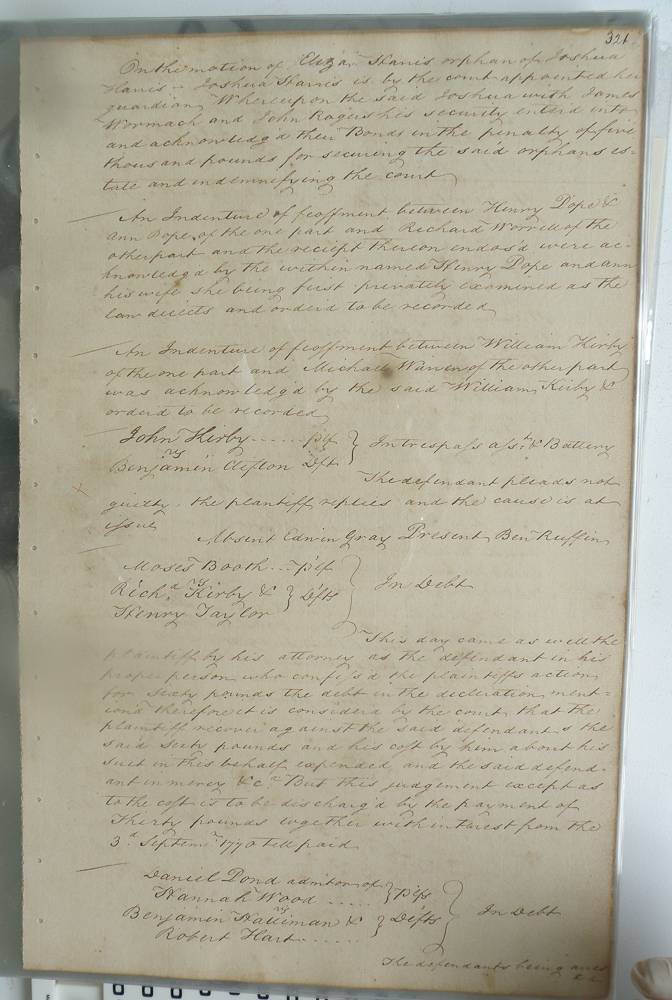 321
On the motion of Eliza.ᵗʰ Harris orphan of Joshua
Harris – Joshua Harris is by the court appointed her
guardian, Whereupon the said Joshua with James
Wormach and John Rogers his security enterd into
and acknowledg'd their Bonds in the penalty of five
thousand pounds for securing the said orphans es-
tate and indemnifying the court
An Indenture of feoffment between Henry Pope &
ann Pope of the one part and Richard Worrell of the
other part and the reciept thereon endos'd were ac-
knowledg'd by the within named Henry Pope and ann
his wife, she being first privately examined as the
law diects and orderd to be recorded
An Indenture of feoffment between William Kirby
of the one part and Michael Warren of the other part
was acknowledg'd by the said William Kirby &
orderd to be recorded
John Kerby ...... plf } In trespass assᵗ & Battery
vs
Benjamin Clifton Deft
The defendant pleads not
guilty, the plantiff replies and the cause is at
issue
Absent Edwin Gray Present Ben Ruffin
Moses Booth ... plf
vs
Richᵈ Kirby & } Defts } In Debt
Henry Taylor
This day came as well the
plaintiff by his attorney as the defendant in his
proper person who confess'd the plaintiffs action
for sixty pounds the debt in the decleration ment-
iond therefore it is considerd by the court that the
plaintiff recover against the said defendants the
said sixty pounds and his cost by him about his
suit in this behalf expended, and the said defend-
ant in mercy &cᵃ But this judgement except as
to the cost is to be discharg'd by the payment of
Thirty pounds together with interest from the
3ᵈ Septemʳ 1770 till paid
Daniel Pond admitor of } Plfs
Hannah Wood .....
vs
Benjamin Halliman & } Defts } In Debt
Robert Hart .....
The defendants being arres